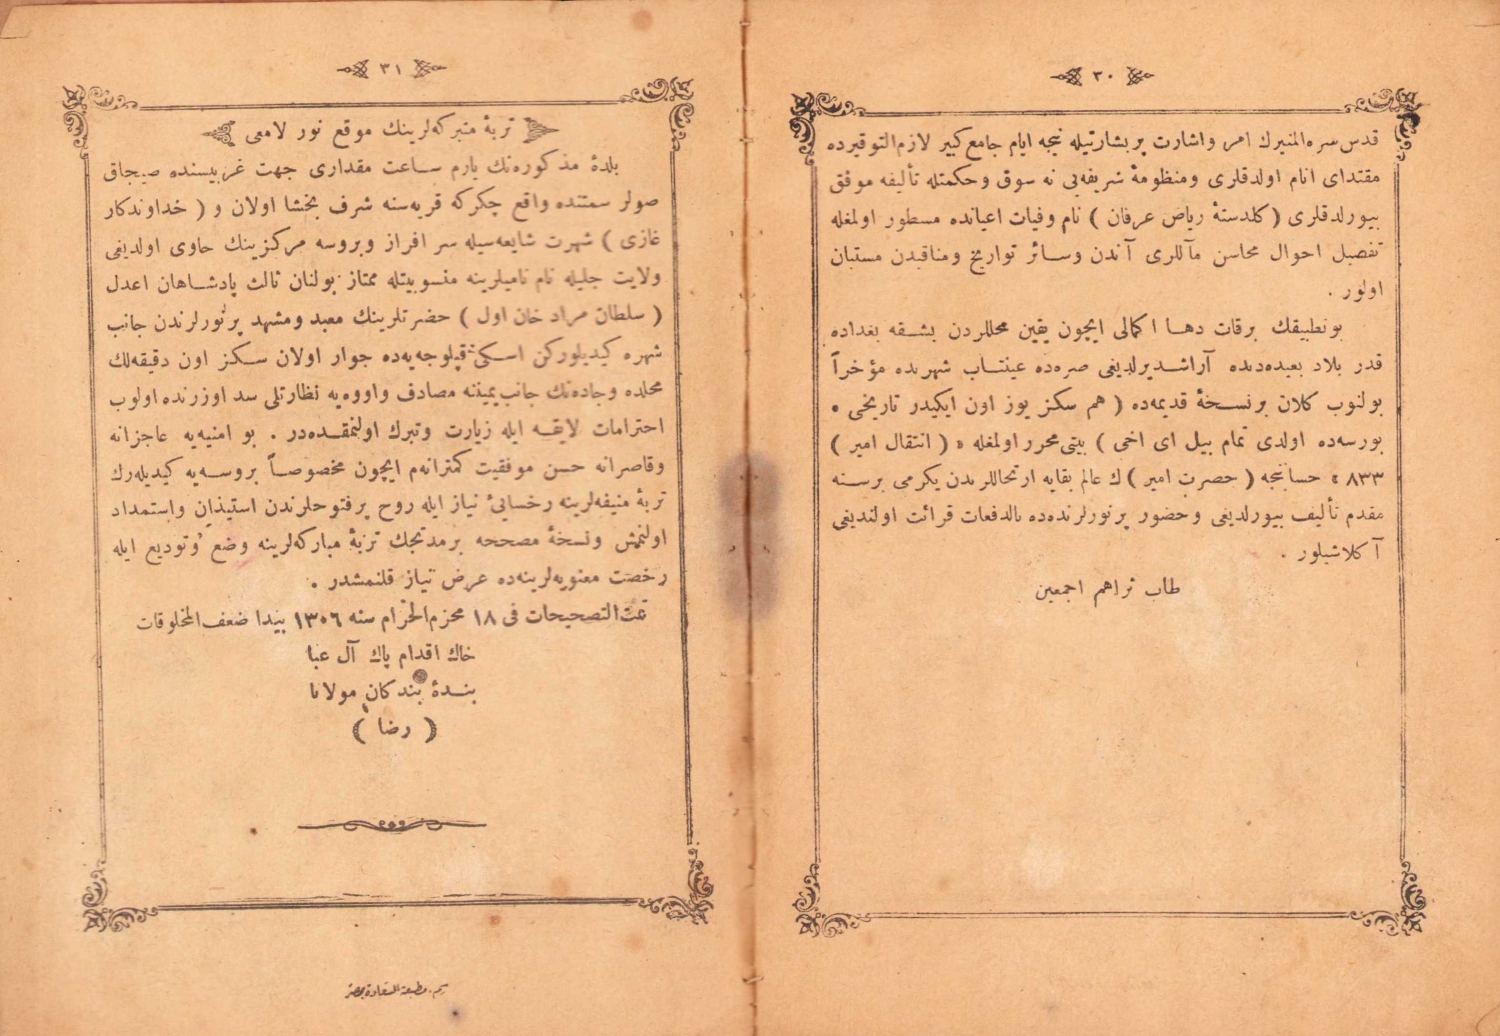 ٣٠
قدس سره المنيرك امر واشارت پر بشارتيله نيجه ايام جامع كبير لازم التوقيرده
مقتداى انام اولدقلرى ومنظومۀ شريفه‌يى نه سوق وحكمتله تأليفه موفق
بيورلدقلرى ( كلدستۀ رياض عرفان ) نام وفيات اعيانده مسطور اولمغله
تفصيل احوال محاسن مآللرى آندن وسائر تواريخ ومناقبدن مستبان
اولور .
بو تطبيقك برقات دها اكمالى ايچون يقين محللردن بشقه بغداده
قدر بلاد بعيده‌دنده آراشديرلديغى صره‌ده عينتاب شهرنده مؤخراً
بولنوب كلان بر نسخۀ قديمه‌ده ( هم سكز يوز اون ايكيدر تاريخى •
بورسه‌ده اولدى تمام بيل اى اخى ) بيتى محرر اولمغله « ( انتقال امير )
٨٣٣ » حسابنجه ( حضرت امير ) ك عالم بقايه ارتحاللرندن يكرمى بر سنه
مقدم تأليف بيورلديغى وحضور پر نورلرنده‌ده بالدفعات قرائت اولنديغى
آكلاشيلور .
طاب ثراهم اجمعين
٣١
تربۀ متبركه‌لرينك موقع نور لامعى
بلدۀ مذكوره‌نك يارم ساعت مقدارى جهت غربيسنده صيجاق
صولر سمتنده واقع چكركه قريه‌سنه شرف بخشا اولان و ( خداوندكار
غازى ) شهرت شايعه‌سيله سر افراز وبروسه مركزينك حاوى اولديغى
ولايت جليله نام ناميلرينه منسوبيتله ممتاز بولنان ثالث پادشاهان اعدل
( سلطان مراد خان اول ) حضرتلرينك معبد ومشهد پر نورلرندن جانب
شهره كيديلوركن اسكى قپلوجه‌يه‌ده جوار اولان سكز اون دقيقه‌لك
محلده وجاده‌نك جانب يميننه مصادف واووه‌يه نظارتلى سد اوزرنده اولوب
احترامات لايقه ايله زيارت وتبرك اولنمقده‌در . بو امنيه‌يه عاجزانه
وقاصرانه حسن موفقيت كمترانه‌م ايچون مخصوصاً بروسه‌يه كيديله‌رك
تربۀ منيفه‌لرينه رخسايئ نياز ايله روح پر فتوحلرندن استيذان واستمداد
اولنمش ونسخۀ مصححه برمدتجك تربۀ مباركه‌لرينه وضع وتوديع ايله
رخصت معنويه‌لرينه‌ده عرض نياز قلنمشدر .
تمت التصحيحات فى ١٨ محرم الحرام سنه ١٣٠٦ بيدا ضعف المخلوقات
خاك اقدام پاك آل عبا
بندۀ بندكان مولانا
( رضا )
مطبعة السعادة بمصر